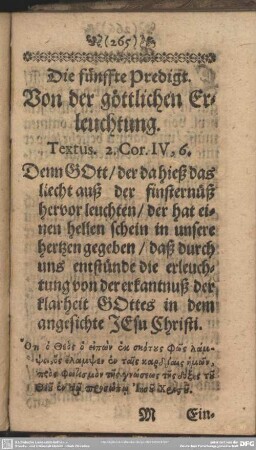 (265)
Die fünffte Predigt.
Von der göttlichen Er-
leuchtung.
Textus. 2. Cor. IV, 6.
Denn GOtt / der da hieß das
liecht auß der finsternüß
hervor leuchten / der hat ei-
nen hellen schein in unsere
hertzen gegeben / daß durch
uns entstünde die erleuch-
tung von der erkantnuß der
klarheit GOttes in dem
angesichte JEsu Christi.
Ὅτι ὁ Θεὸς ὁ εἰπὼν ἐκ σκότους φῶς λάμ-
ψαι, ὃς ἔλαμψεν ἐν ταῖς καρδίαις ἡμῶν,
πρὸς φωτισμὸν τῆς γνώσεως τῆς δόξης τοῦ
Θεοῦ ἐν προσώπῳ Ἰησοῦ Χριστοῦ
M Ein-